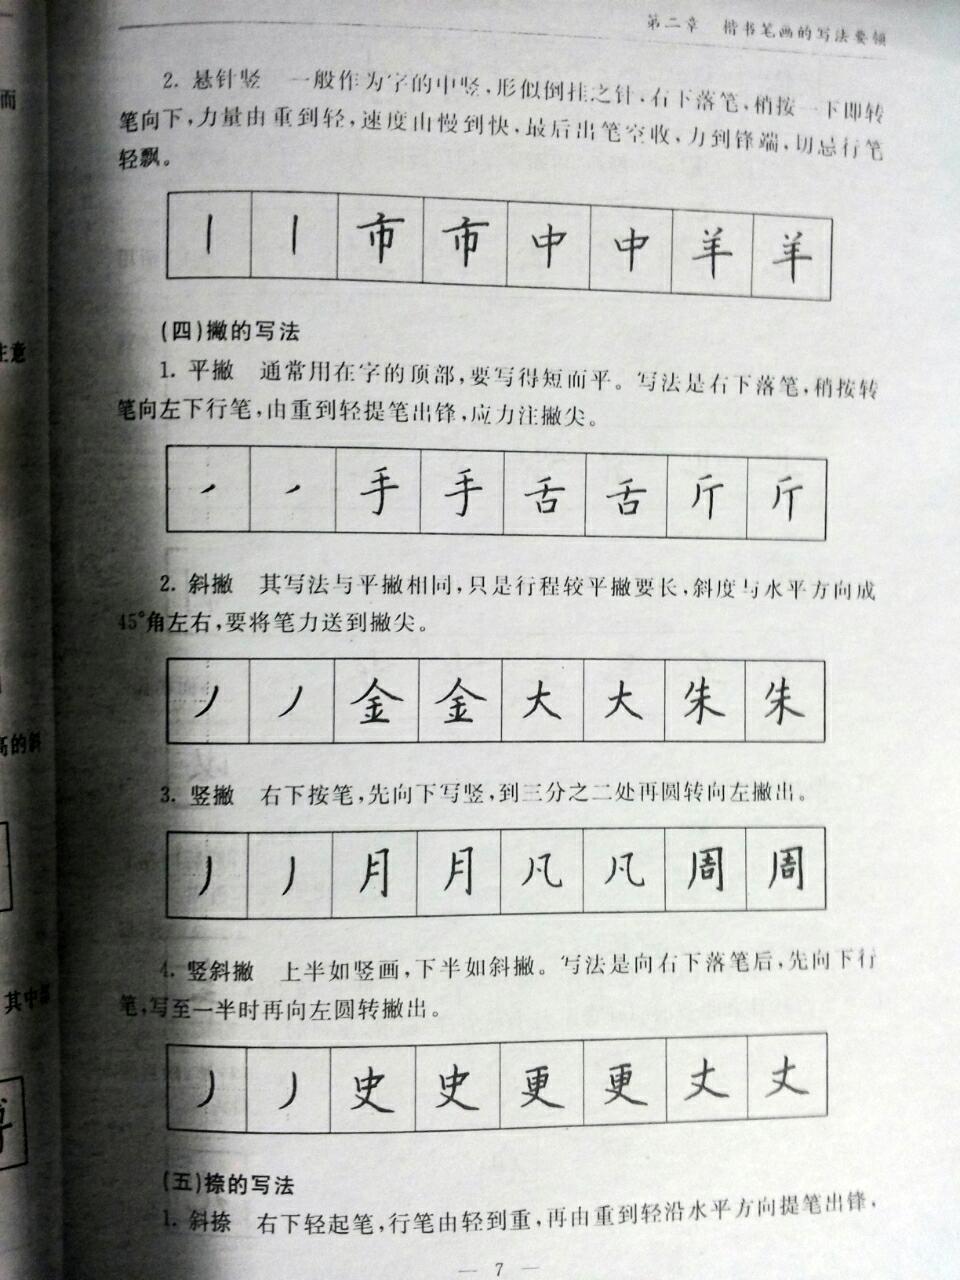 第二章 楷书笔画的写法要领
2. 悬针竖 一般作为字的中竖,形似倒挂之针,右下落笔,稍按一下即转
笔向下,力量由重到轻,速度由慢到快,最后出笔空收,力到锋端,切忌行笔
轻飘。
丨 丨 市 市 中 中 羊 羊
(四)撇的写法
1. 平撇 通常用在字的顶部,要写得短而平。写法是右下落笔,稍按转
笔向左下行笔,由重到轻提笔出锋,应力注撇尖。
㇒ ㇒ 手 手 舌 舌 斤 斤
2. 斜撇 其写法与平撇相同,只是行程较平撇要长,斜度与水平方向成
45°角左右,要将笔力送到撇尖。
丿 丿 金 金 大 大 朱 朱
3. 竖撇 右下按笔,先向下写竖,到三分之二处再圆转向左撇出。
丿 丿 月 月 凡 凡 周 周
4. 竖斜撇 上半如竖画,下半如斜撇。写法是向右下落笔后,先向下行
笔,写至一半时再向左圆转撇出。
丿 丿 史 史 更 更 丈 丈
(五)捺的写法
1. 斜捺 右下轻起笔,行笔由轻到重,再由重到轻沿水平方向提笔出锋,
— 7 —
而
注意
高的斜
其中部